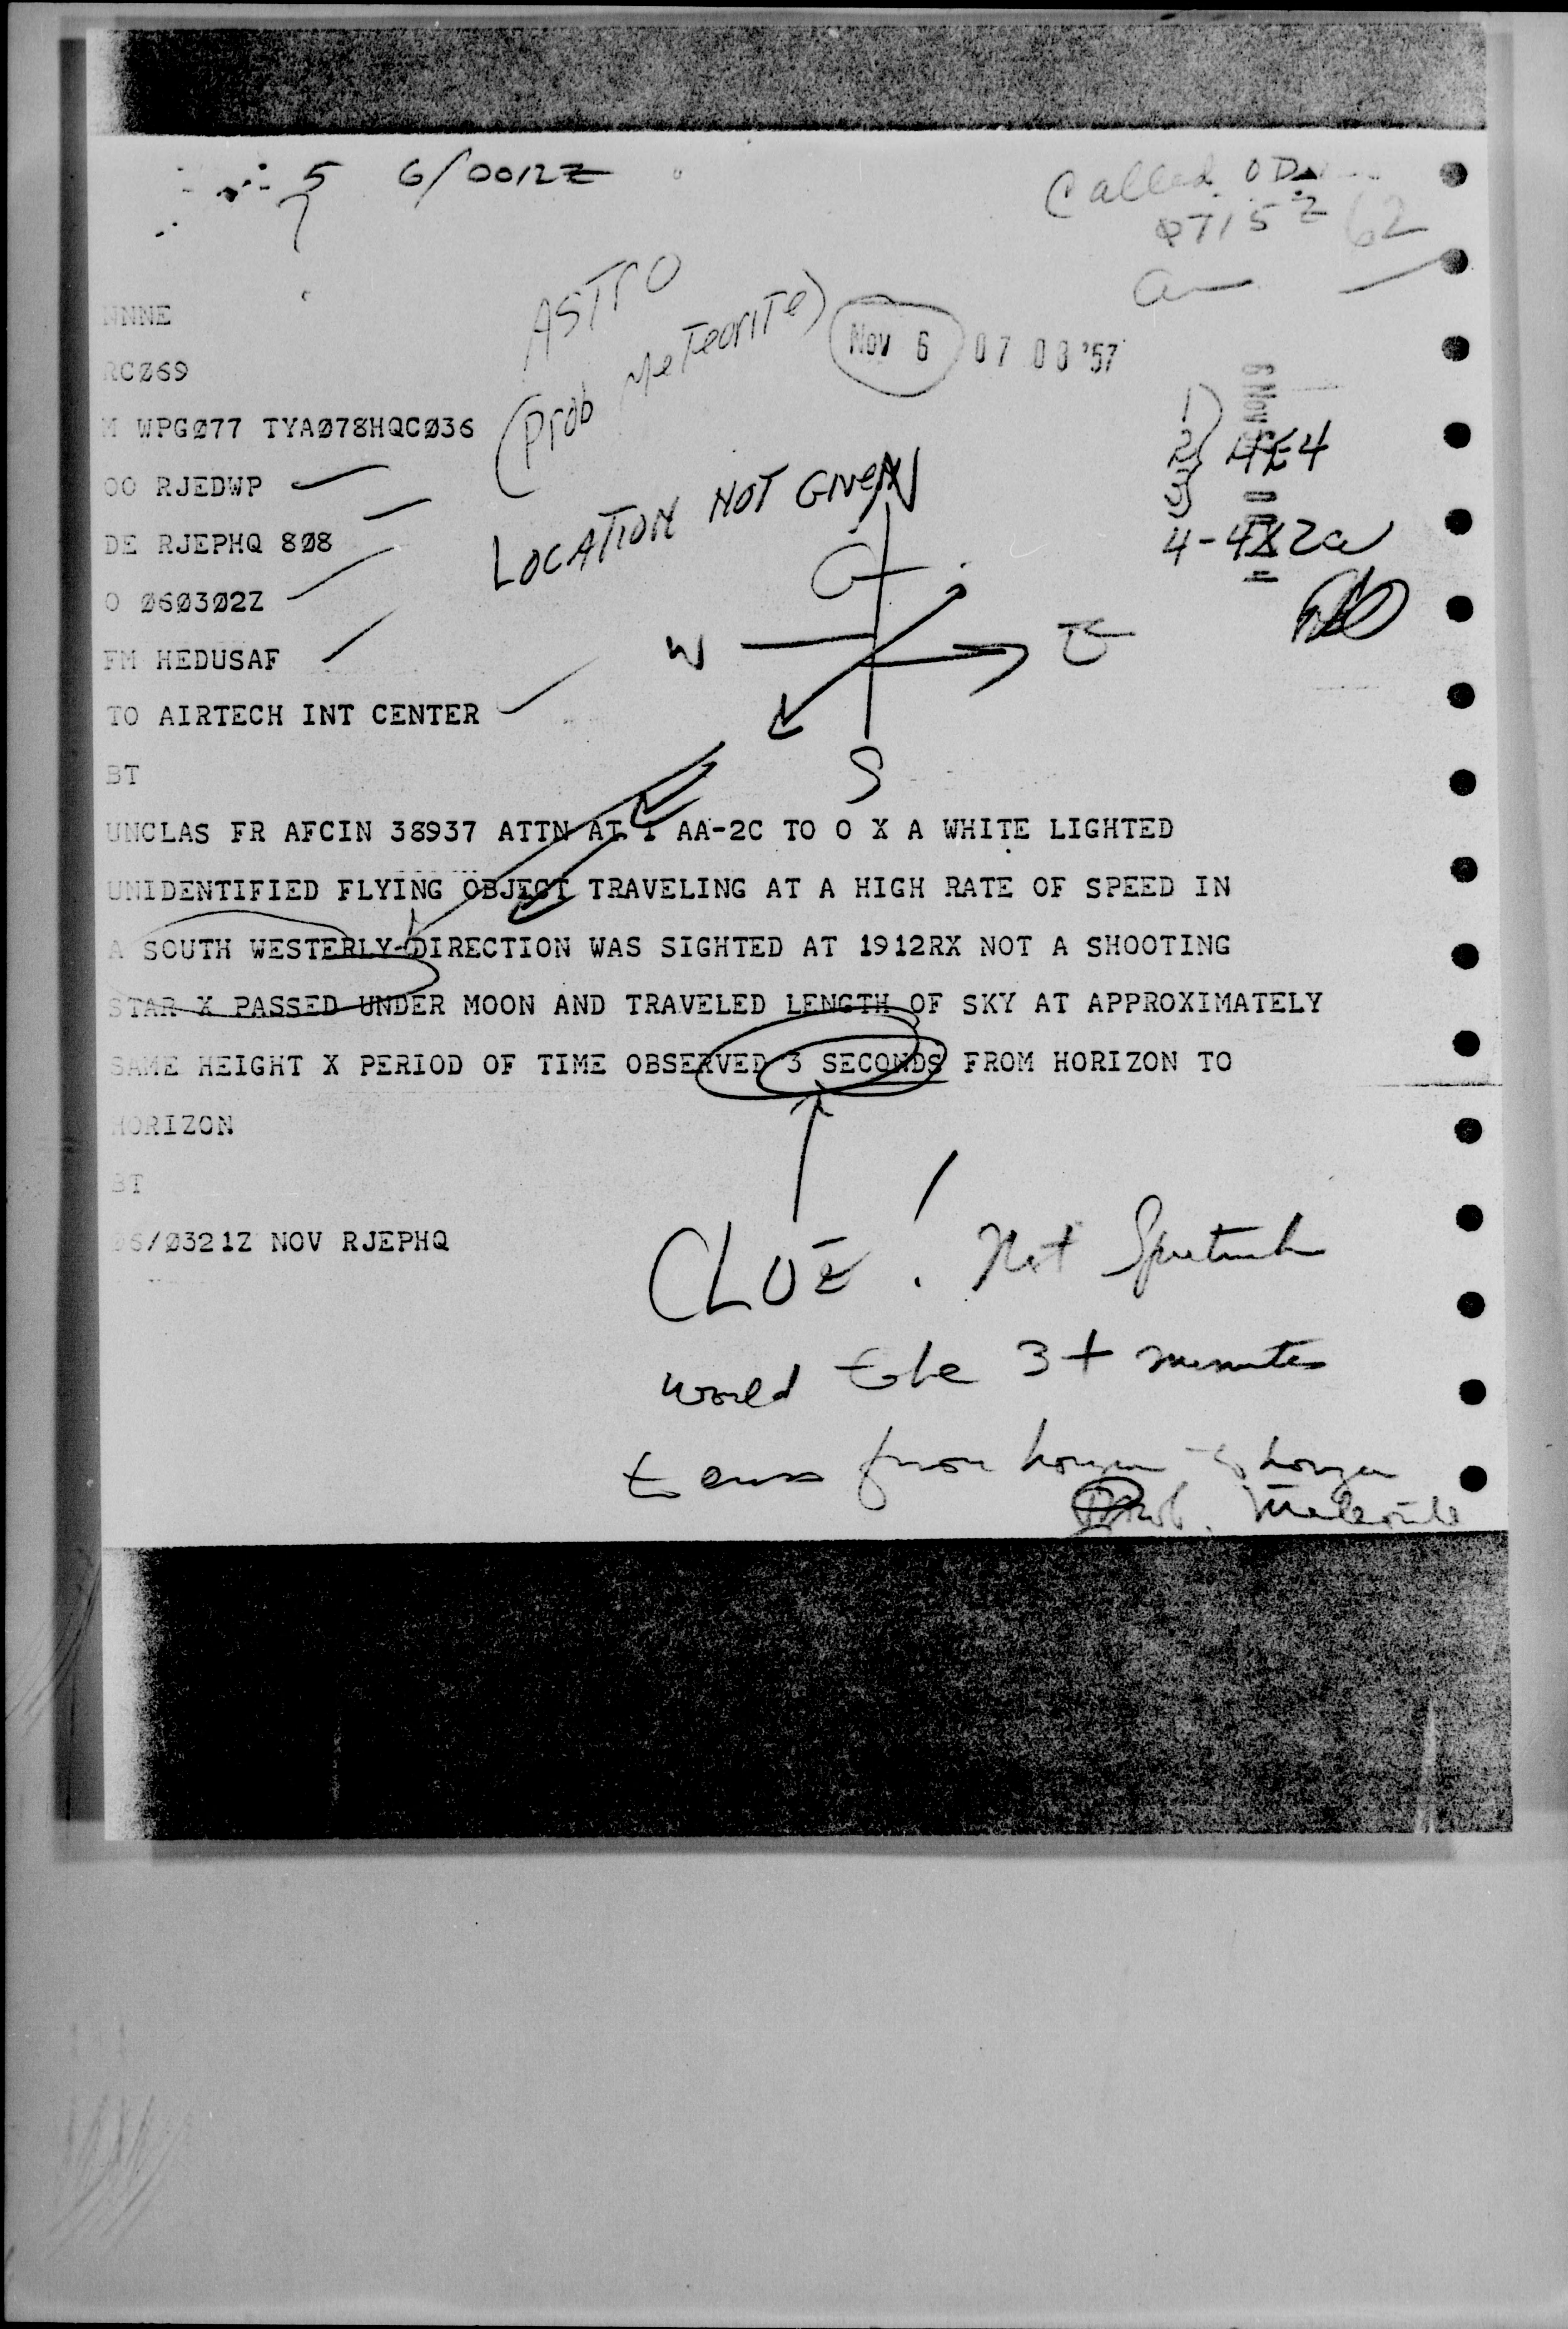 5 6/0012Z
Called OD
0715Z 62
ASTRO
(Prob Meteorite)
NOV 6 07 08 '57
NNNE
RCØ69
M WPGØ77 TYAØ78HQCØ36
1)
2) 4E4
3)
OO RJEDWP
LOCATION NOT GIVEN
4-4X2a
DE RJEPHQ 8Ø8
O Ø6Ø3Ø2Z
N
W E
S
FM HEDUSAF
TO AIRTECH INT CENTER
BT
UNCLAS FR AFCIN 38937 ATTN AT 1 AA-2C TO O X A WHITE LIGHTED
UNIDENTIFIED FLYING OBJECT TRAVELING AT A HIGH RATE OF SPEED IN
A SOUTH WESTERLY-DIRECTION WAS SIGHTED AT 1912RX NOT A SHOOTING
STAR X PASSED UNDER MOON AND TRAVELED LENGTH OF SKY AT APPROXIMATELY
SAME HEIGHT X PERIOD OF TIME OBSERVED 3 SECONDS FROM HORIZON TO
HORIZON
BT
06/Ø321Z NOV RJEPHQ
CLUE! Not Sputnik
would take 3+ minutes
to cross from horizon to horizon
Prob. Meteorite